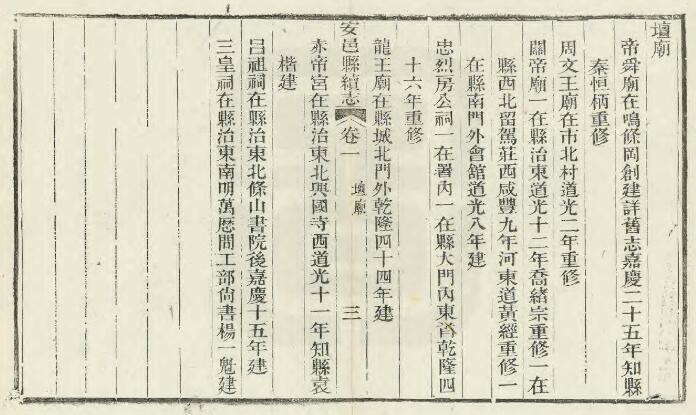 壇廟
帝舜廟在鳴條岡創建詳舊志嘉慶二十五年知縣
秦恒柄重修
周文王廟在市北村道光二年重修
關帝廟一在縣治東道光十二年喬緒宗重修一在
縣西北留駕莊西咸豐九年河東道黃經重修一
在縣南門外會館道光八年建
忠烈房公祠一在署內一在縣大門內東首乾隆四
十六年重修
龍王廟在縣城北門外乾隆四十四年建
安邑縣續志 卷一 壇廟 三
赤帝宮在縣治東北興國寺西道光十一年知縣袁
楷建
呂祖祠在縣治東北條山書院後嘉慶十五年建
三皇祠在縣治東南明萬曆間工部尙書楊一魁建